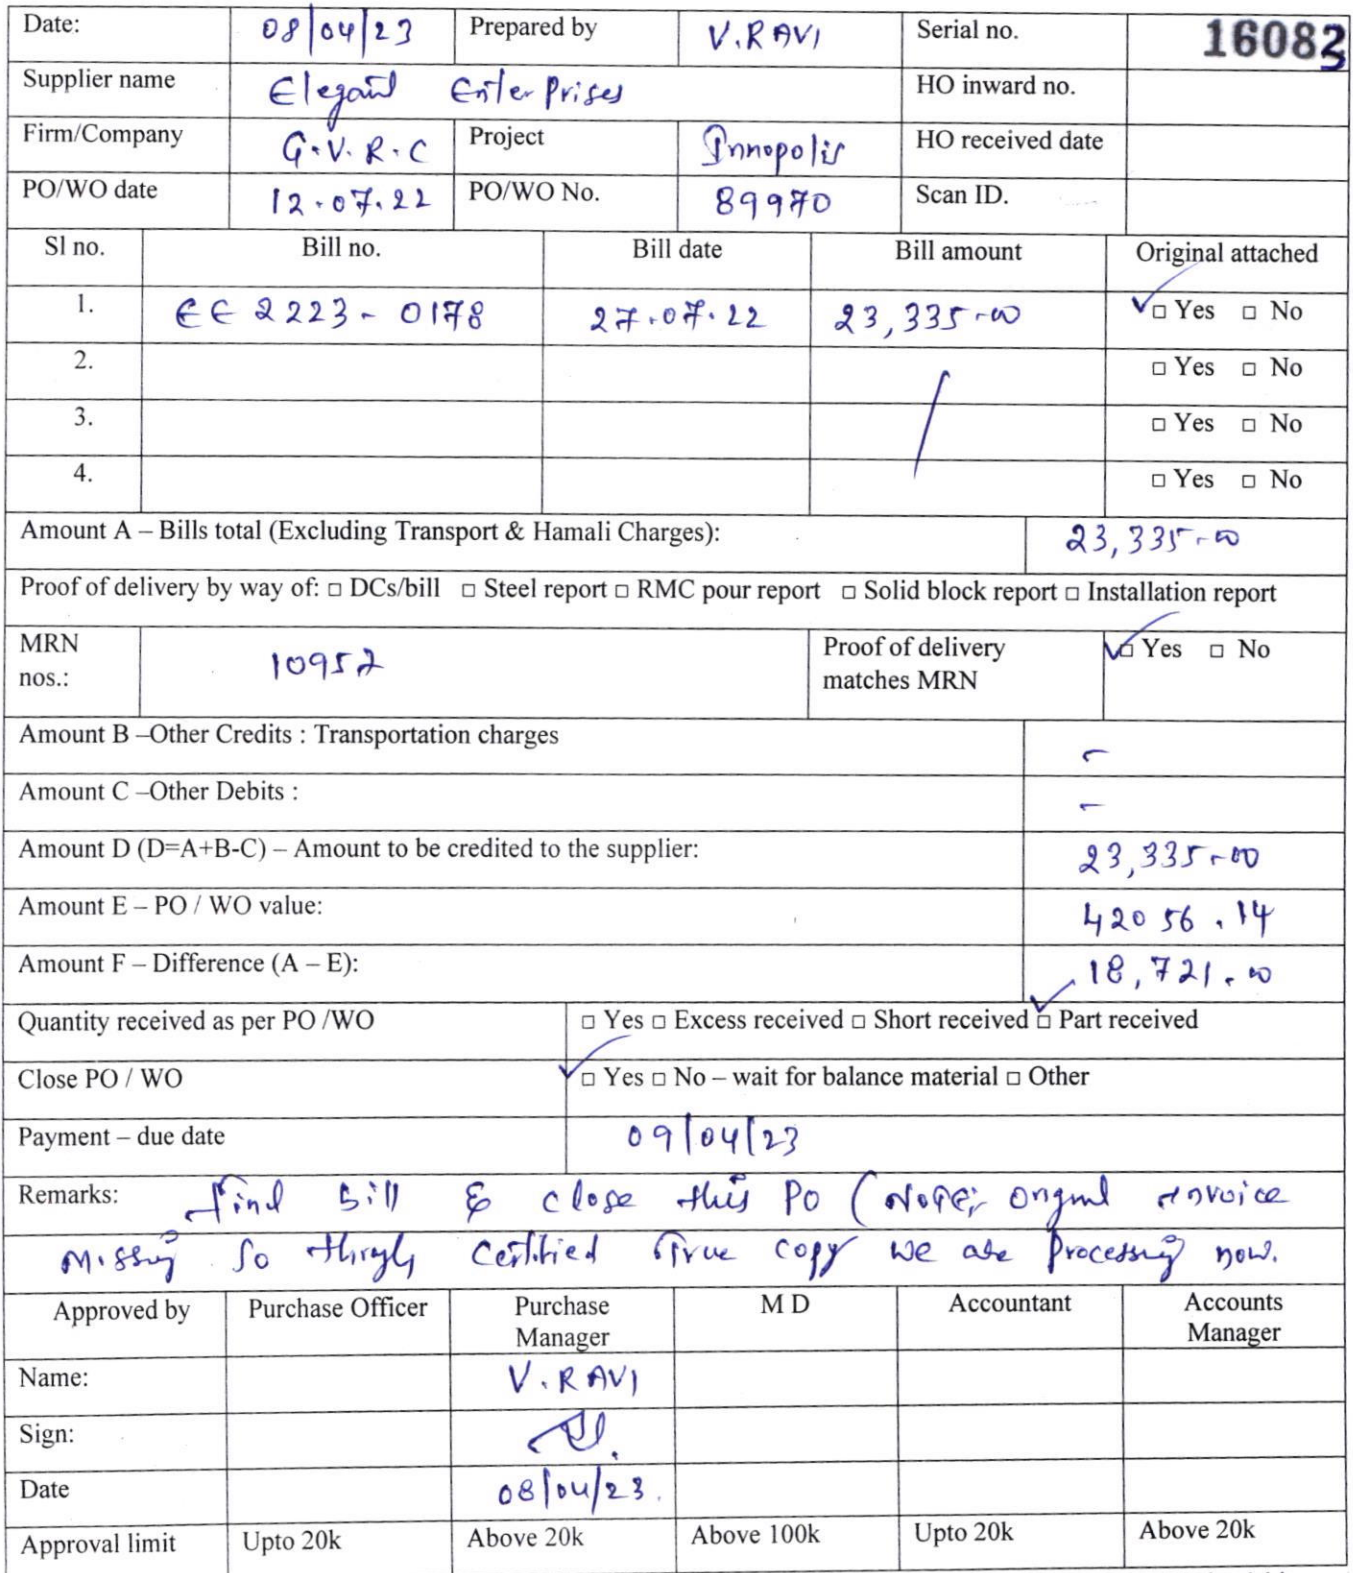 Date: 08/04/23 Prepared by V.RAVI Serial no. 16083
Supplier name Elegant Enterprises HO inward no.
Firm/Company G.V.R.C Project Innopolis HO received date
PO/WO date 12.07.22 PO/WO No. 89970 Scan ID.
Sl no. Bill no. Bill date Bill amount Original attached
1. EE 2223 - 0178 27.07.22 23,335-00 ✓□ Yes □ No
2. □ Yes □ No
3. □ Yes □ No
4. □ Yes □ No
Amount A – Bills total (Excluding Transport & Hamali Charges): 23,335-00
Proof of delivery by way of: □ DCs/bill □ Steel report □ RMC pour report □ Solid block report □ Installation report
MRN nos.: 10952 Proof of delivery matches MRN ✓□ Yes □ No
Amount B –Other Credits : Transportation charges -
Amount C –Other Debits : -
Amount D (D=A+B-C) – Amount to be credited to the supplier: 23,335-00
Amount E – PO / WO value: 42056.14
Amount F – Difference (A – E): 18,721.00
Quantity received as per PO /WO □ Yes □ Excess received □ Short received ✓□ Part received
Close PO / WO ✓□ Yes □ No – wait for balance material □ Other
Payment – due date 09/04/23
Remarks: find bill & close this PO (NOTE; Orignal invoice
Missing So through Certified True copy we are Processing now.
Approved by Purchase Officer Purchase Manager M D Accountant Accounts Manager
Name: V.RAVI
Sign:
Date 08/04/23.
Approval limit Upto 20k Above 20k Above 100k Upto 20k Above 20k